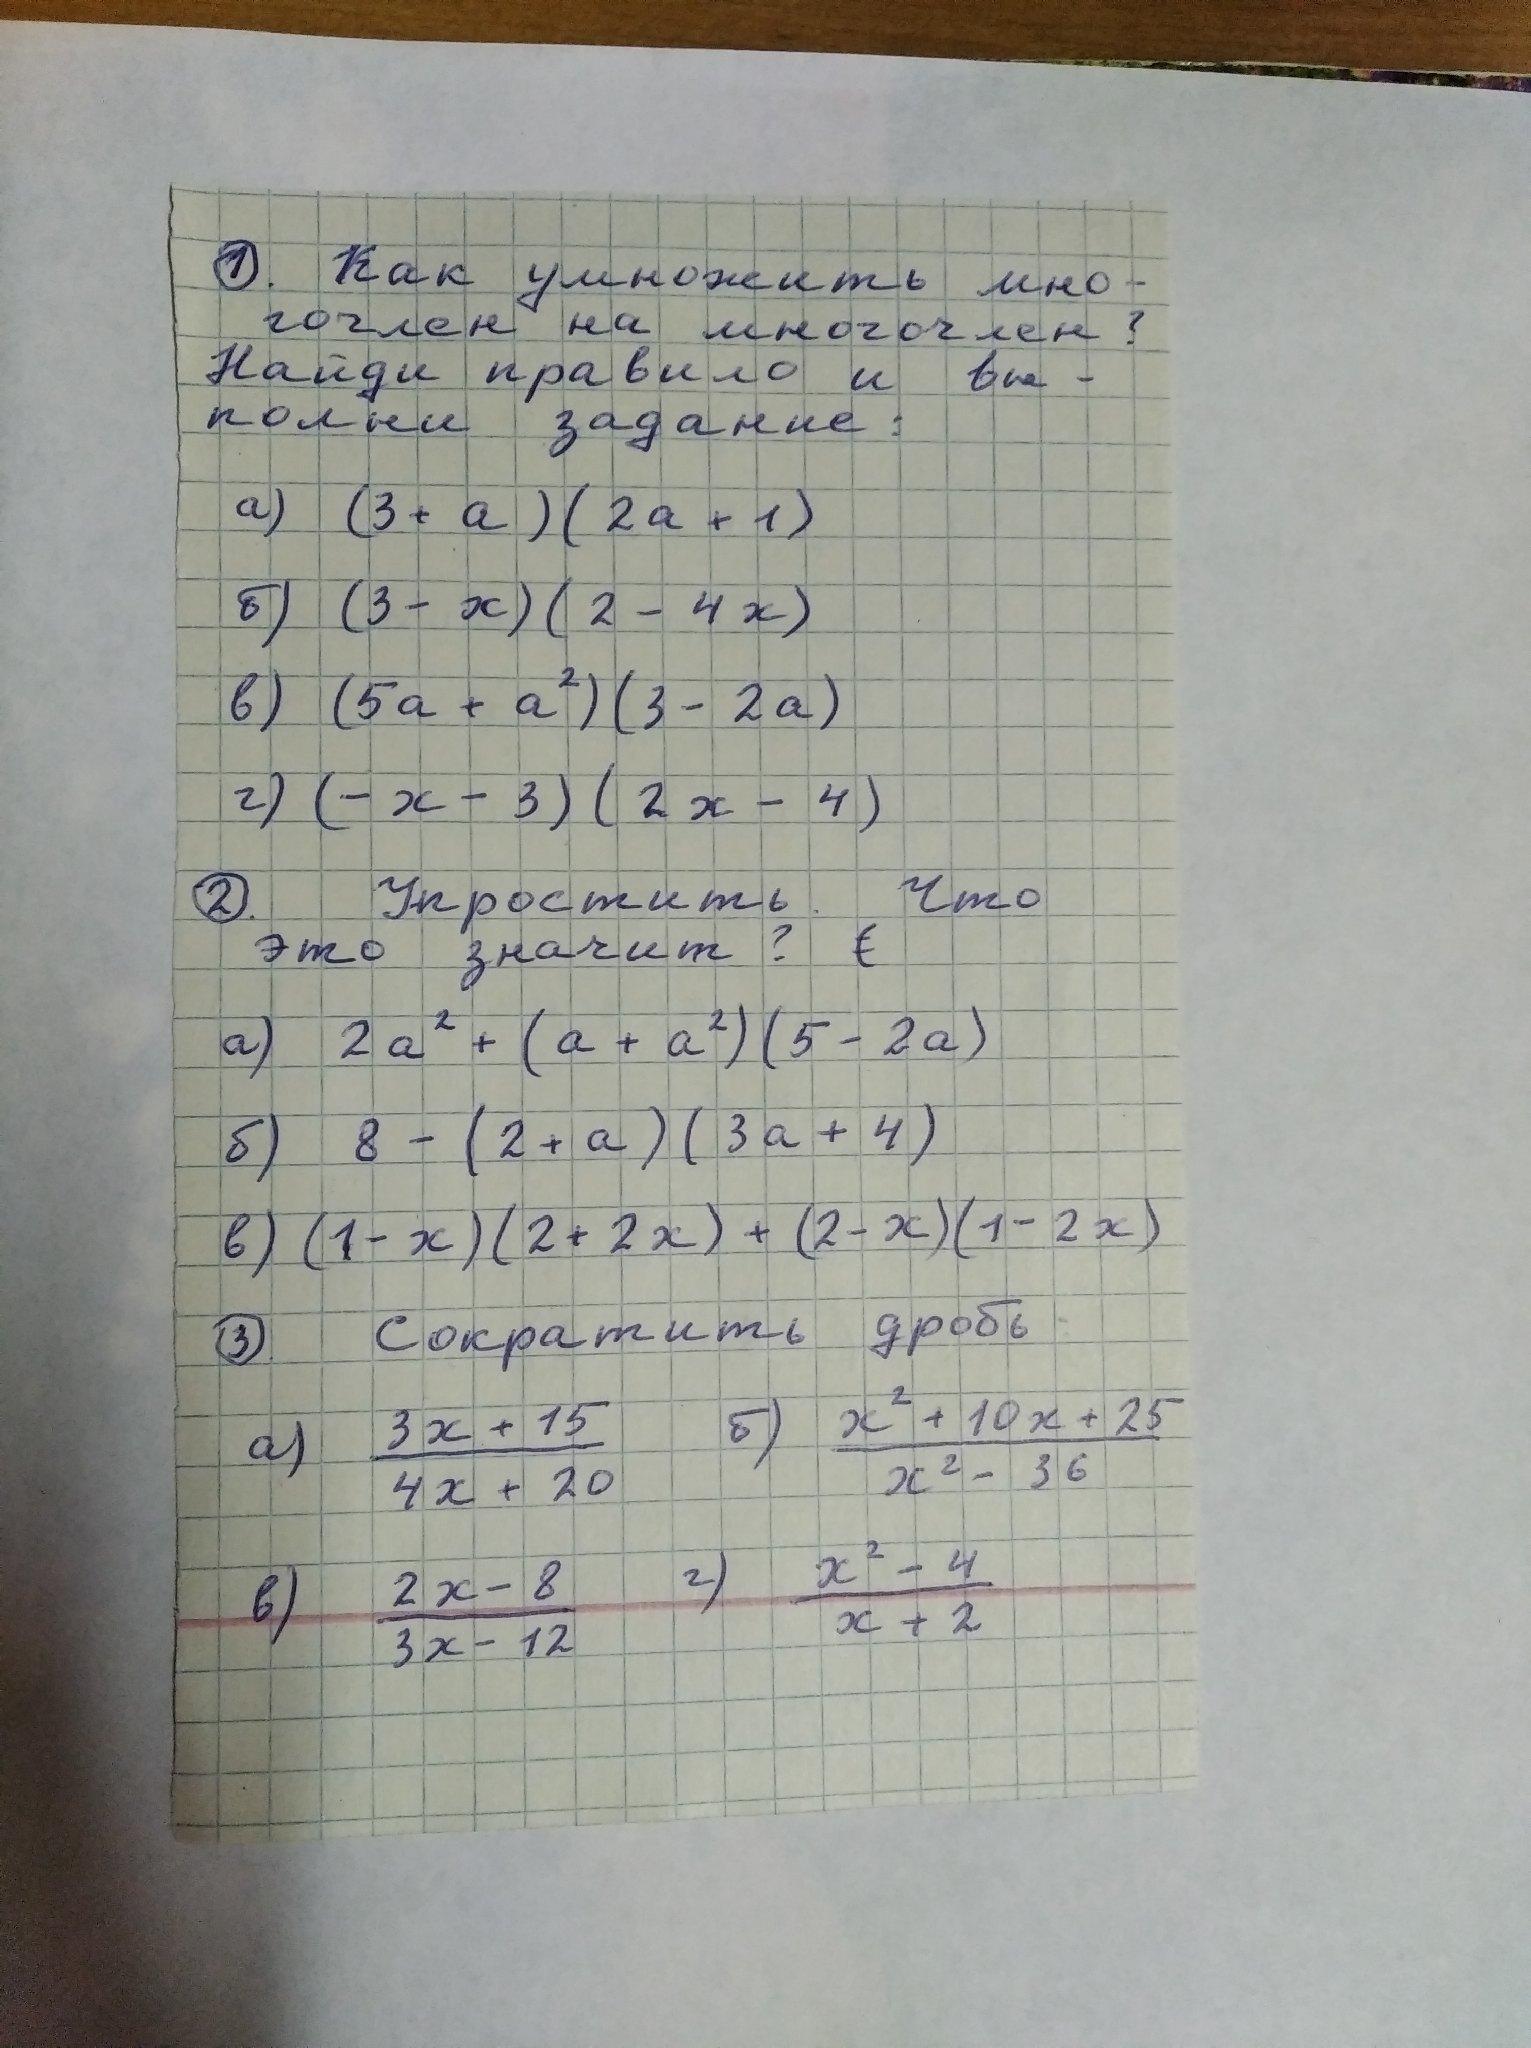 1. Как умножить мно-
гочлен на многочлен?
Найди правило и вы-
полни задание:
а) (3 + a)(2a + 1)
б) (3 - x)(2 - 4x)
в) (5a + a²)(3 - 2a)
г) (-x - 3)(2x - 4)
2. Упростить. Что
это значит?
а) 2a² + (a + a²)(5 - 2a)
б) 8 - (2 + a)(3a + 4)
в) (1 - x)(2 + 2x) + (2 - x)(1 - 2x)
3. Сократить дробь.
а) 3x + 15 б) x² + 10x + 25
4x + 20 x² - 36
в) 2x - 8 г) x² - 4
3x - 12 x + 2